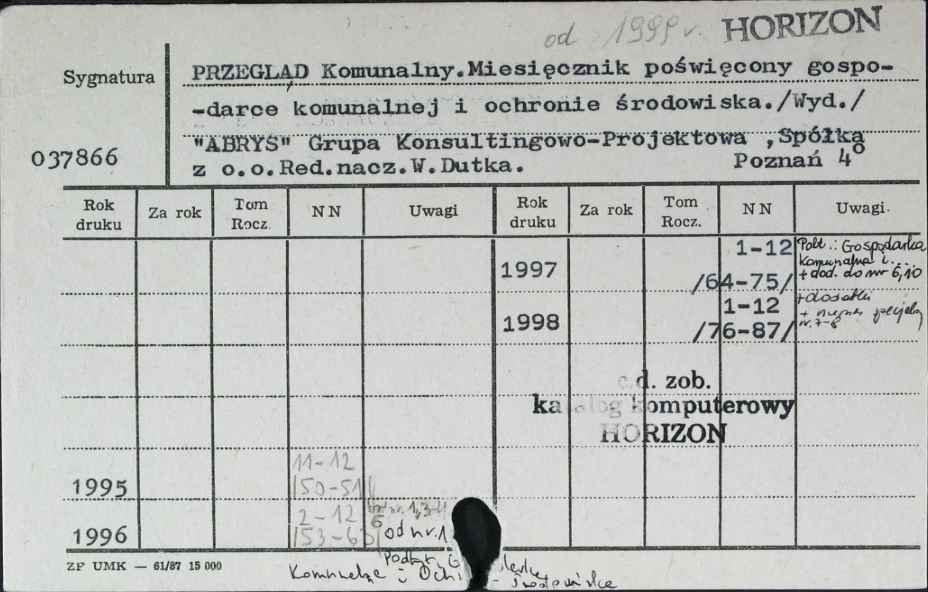 od 1999 r. HORIZON
Sygnatura
PRZEGLĄD Komunalny.Miesięcznik poświęcony gospo-
-darce komunalnej i ochronie środowiska./Wyd./
"ABRYS" Grupa Konsultingowo-Projektowa ,Spółka
z o.o.Red.nacz.W.Dutka. Poznań 4°
037866
Rok druku Za rok Tom Rocz. NN Uwagi Rok druku Za rok Tom Rocz. NN Uwagi.
1997 1-12 /64-75/ Podt.: Gospodarka
komunalna i....
+ dod. do nr 6,10
1998 1-12 /76-87/ +dodatki
+ numer specjalny
nr. 7-8
c.d. zob.
katalog komputerowy
HORIZON
1995 11-12 /50-51/
1996 2-12 /53-63/ od nr.1
Podtyt.
Komunalne i Ochr środowiska
ZP UMK — 61/87 15 000